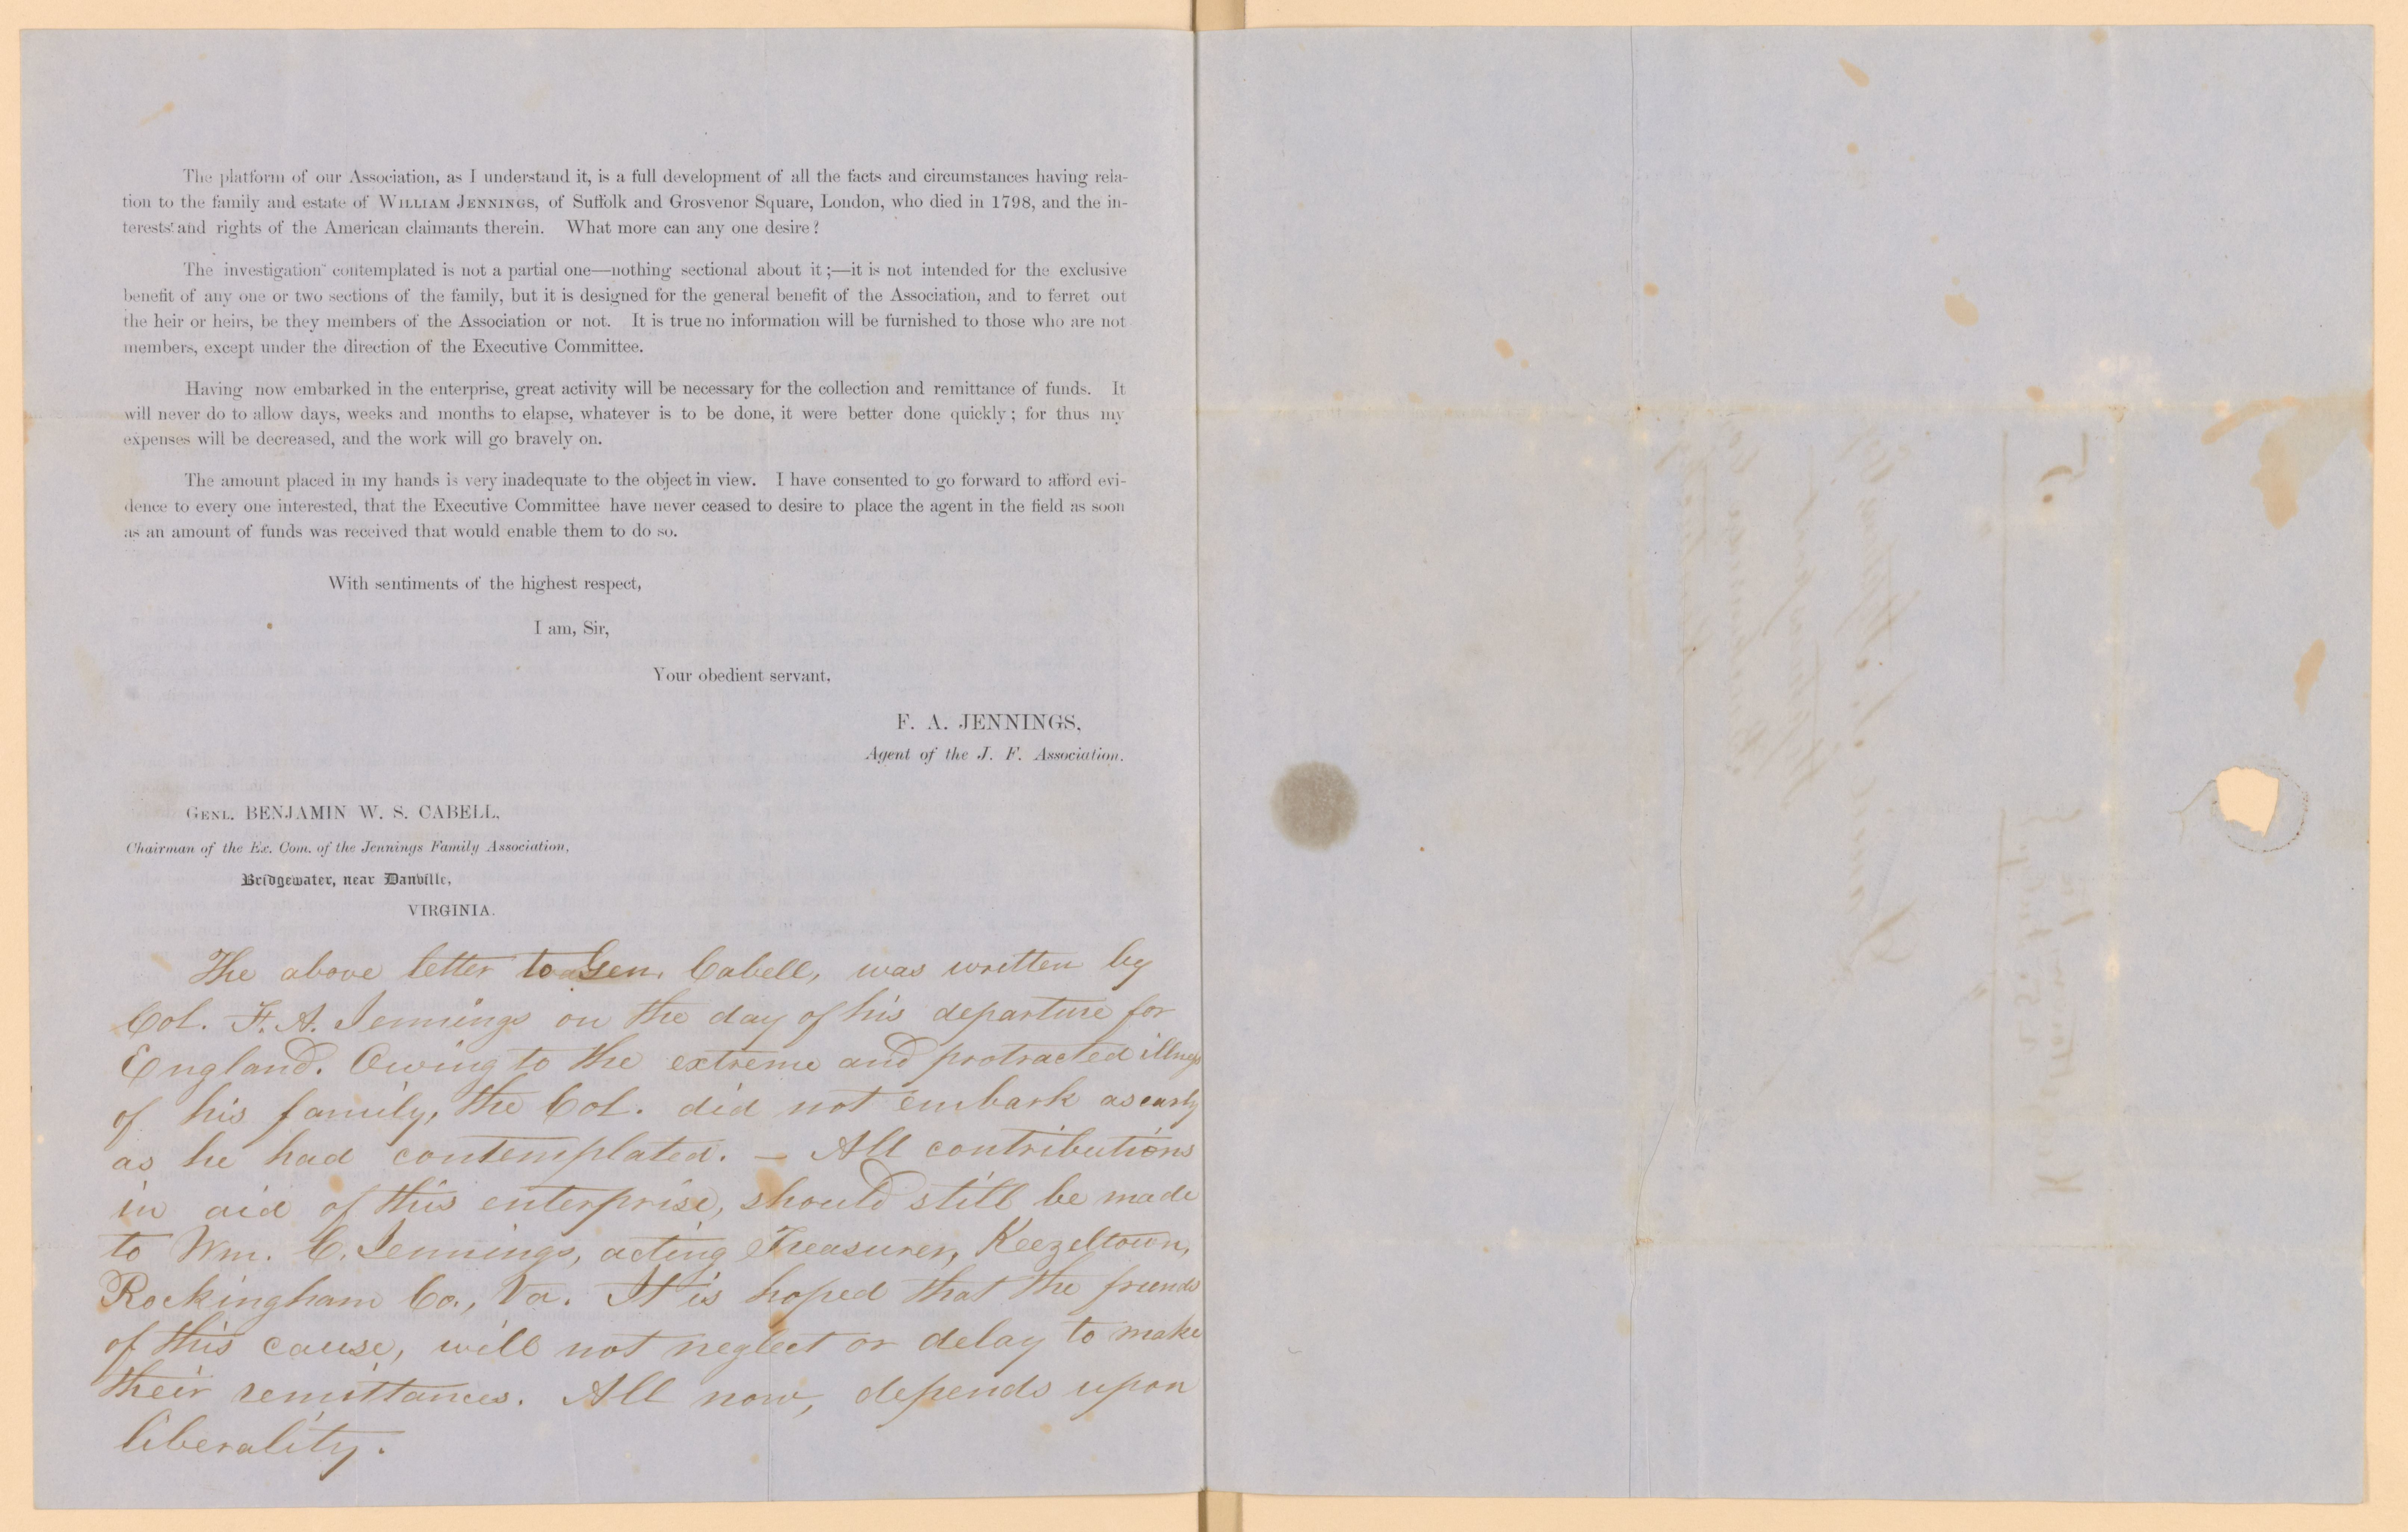 The platform of our Association, as I understand it, is a full development of all the facts and circumstances having rela-
tion to the family and estate of WILLIAM JENNINGS, of Suffolk and Grosvenor Square, London, who died in 1798, and the in-
terests and rights of the American claimants therein. What more can any one desire?
The investigation contemplated is not a partial one—nothing sectional about it;—it is not intended for the exclusive
benefit of any one or two sections of the family, but it is designed for the general benefit of the Association, and to ferret out
the heir or heirs, be they members of the Association or not. It is true no information will be furnished to those who are not
members, except under the direction of the Executive Committee.
Having now embarked in the enterprise, great activity will be necessary for the collection and remittance of funds. It
will never do to allow days, weeks and months to elapse, whatever is to be done, it were better done quickly; for thus my
expenses will be decreased, and the work will go bravely on.
The amount placed in my hands is very inadequate to the object in view. I have consented to go forward to afford evi-
dence to every one interested, that the Executive Committee have never ceased to desire to place the agent in the field as soon
as an amount of funds was received that would enable them to do so.
With sentiments of the highest respect,
I am, Sir,
Your obedient servant,
F. A. JENNINGS,
Agent of the J. F. Association.
GENL. BENJAMIN W. S. CABELL,
Chairman of the Ex. Com. of the Jennings Family Association,
Bridgewater, near Danville,
VIRGINIA.
The above letter to Gen. Cabell, was written by
Col. F. A. Jennings on the day of his departure for
England. Owing to the extreme and protracted illness
of his family, the Col. did not embark as early
as he had contemplated. — All contributions
in aid of this enterprise, should still be made
to Wm. C. Jennings, acting Treasurer, Keezeltown,
Rockingham Co., Va. It is hoped that the friends
of this cause, will not neglect or delay to make
their remittances. All now, depends upon
liberality.